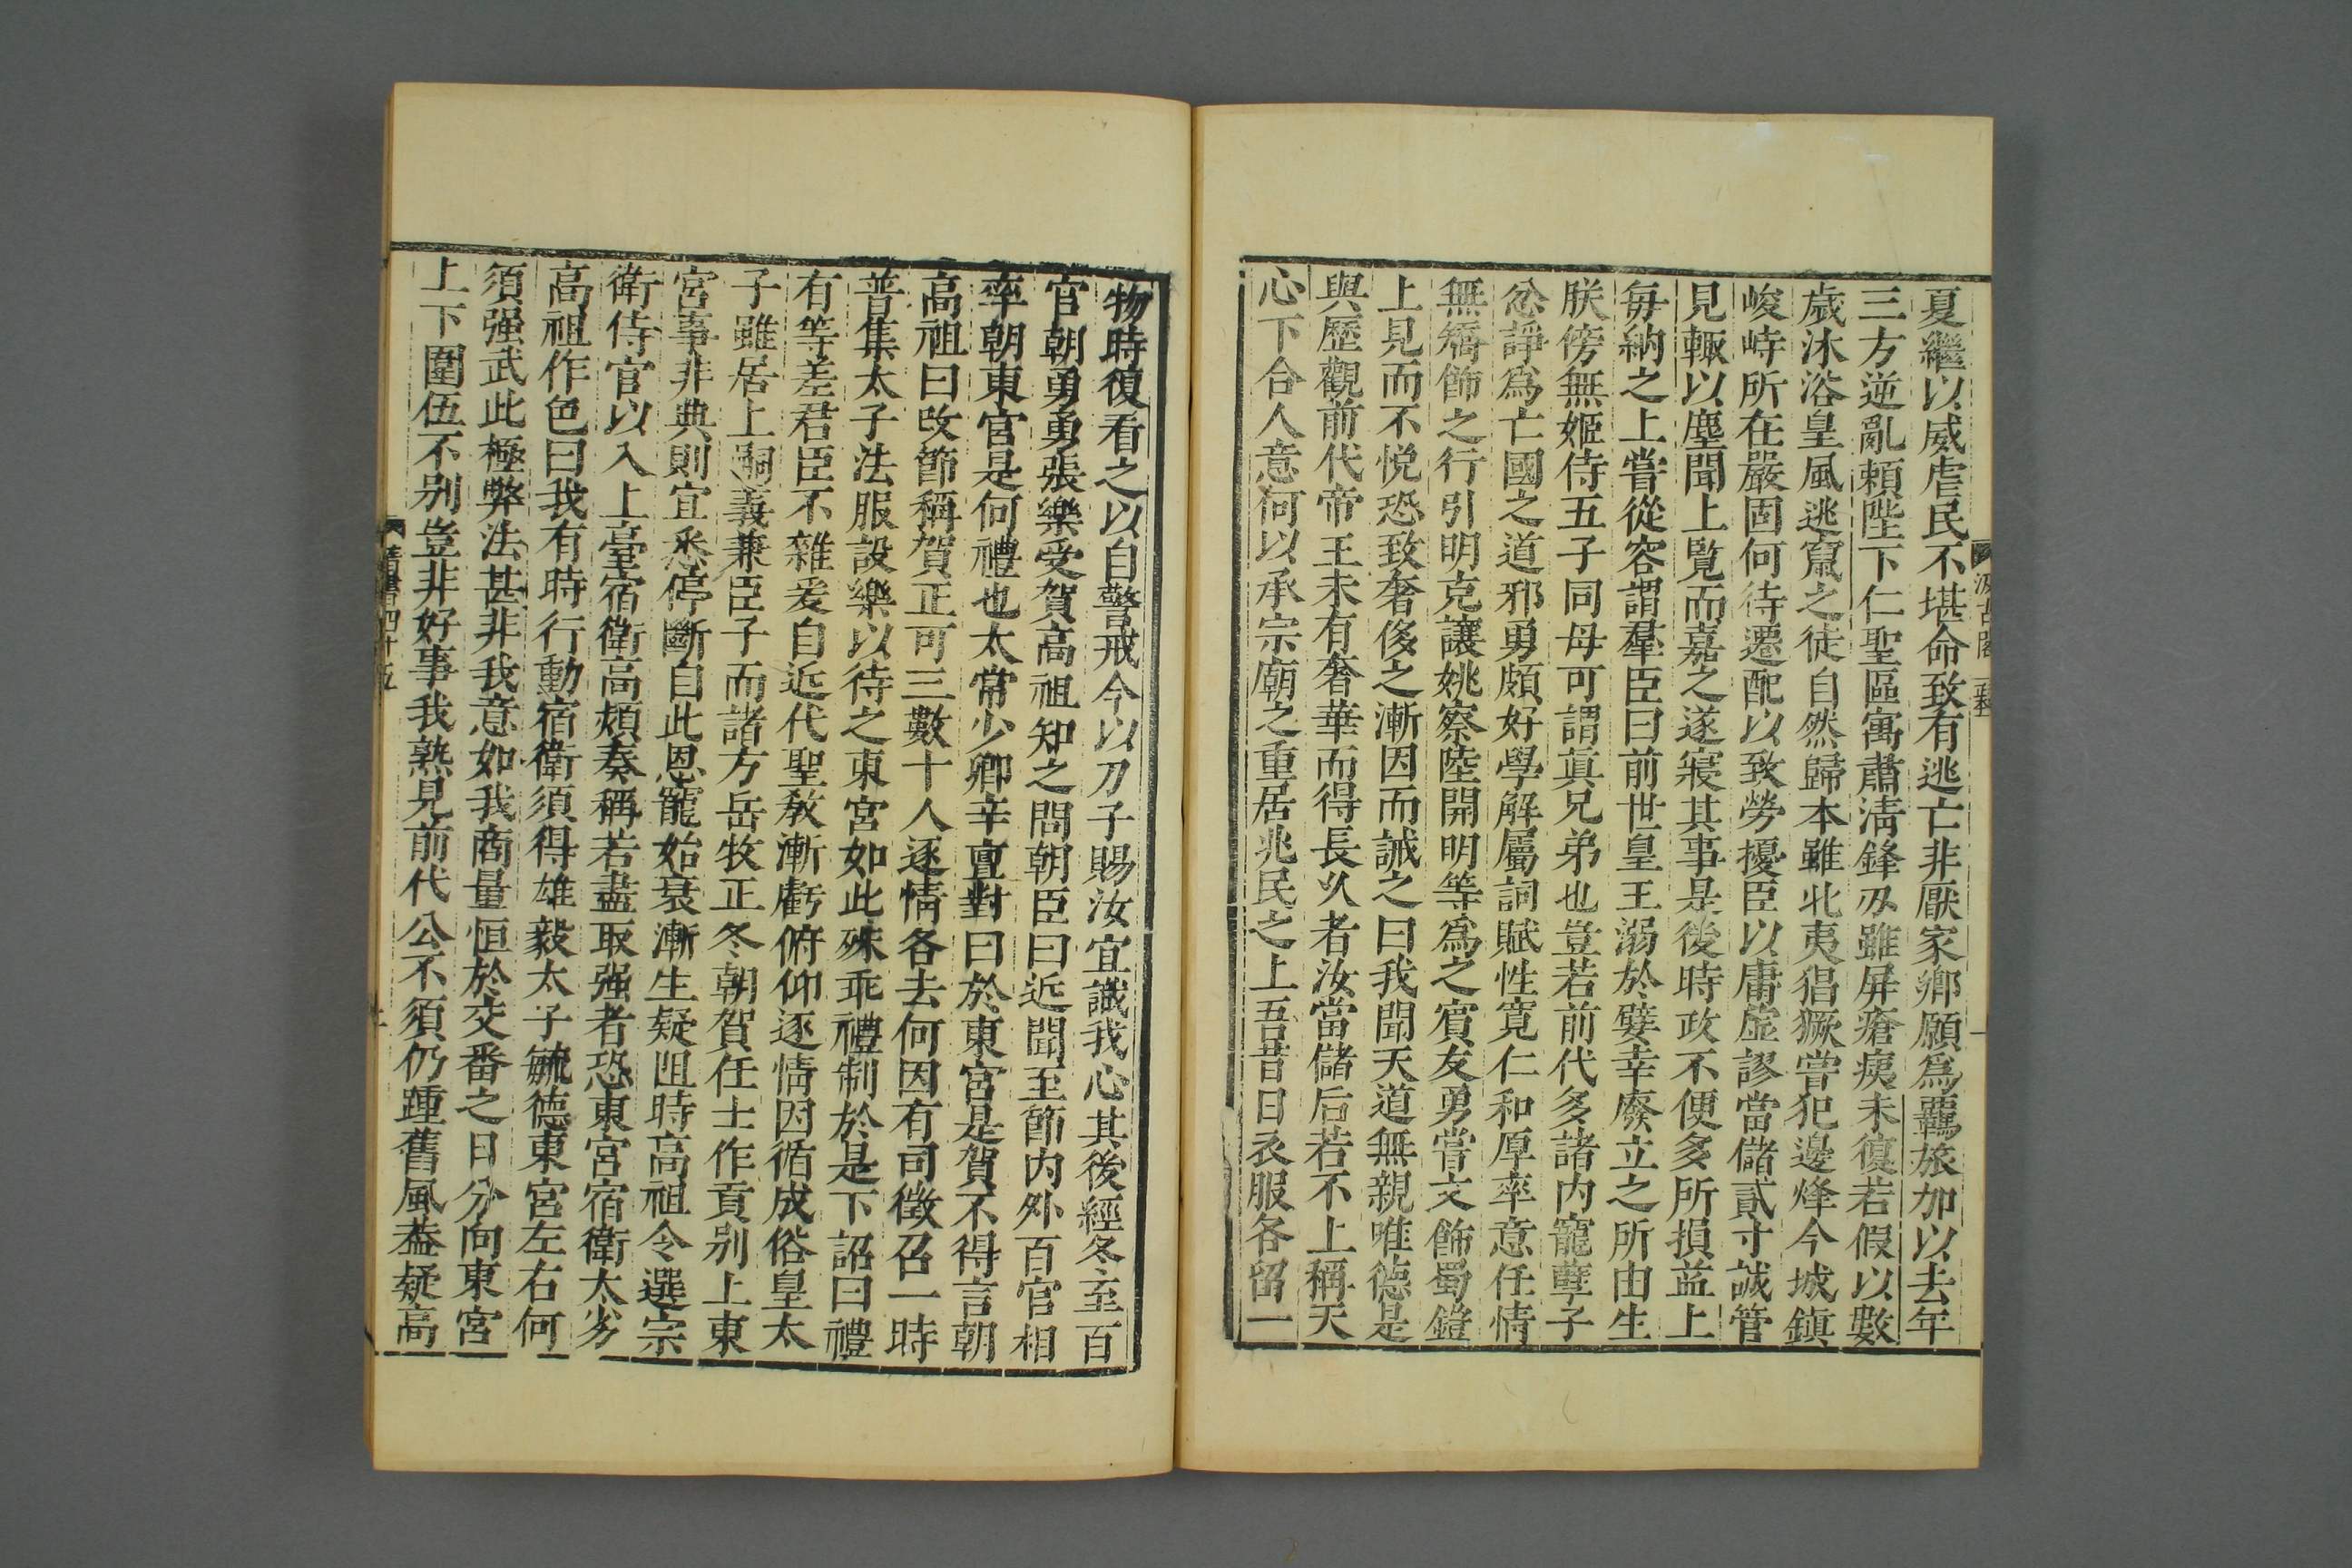 夏繼以威虐民不堪命致有逃亡非厭家鄉願爲羈旅加以去年
三方逆亂賴陛下仁聖區寓肅淸鋒刃雖屏瘡痍未復若假以數
歲沐浴皇風逃竄之徒自然歸本雖北夷猖獗嘗犯邊烽今城鎮
峻峙所在嚴固何待遷配以致勞擾臣以庸虛謬當儲貳寸誠管
見輒以塵聞上覽而嘉之遂寢其事是後時政不便多所損益上
每納之上嘗從容謂羣臣曰前世皇王溺於嬖幸廢立之所由生
朕傍無姬侍五子同母可謂眞兄弟也豈若前代多諸內寵孽子
忿諍爲亡國之道邪勇頗好學解屬詞賦性寬仁和厚率意任情
無矯飾之行引明克讓姚察陸開明等爲之賓友勇嘗文飾蜀鎧
上見而不悅恐致奢侈之漸因而誡之曰我聞天道無親唯德是
與歷觀前代帝王未有奢華而得長久者汝當儲后若不上稱天
心下合人意何以承宗廟之重居兆民之上吾昔日衣服各留一
汲古閣
物時復看之以自警戒今以刀子賜汝宜識我心其後經冬至百
官朝勇勇張樂受賀高祖知之問朝臣曰近聞至節內外百官相
率朝東宮是何禮也太常少卿辛亶對曰於東宮是賀不得言朝
高祖曰改節稱賀正可三數十人逐情各去何因有司徵召一時
普集太子法服設樂以待之東宮如此殊乖禮制於是下詔曰禮
有等差君臣不雜爰自近代聖敎漸虧俯仰逐情因循成俗皇太
子雖居上嗣義兼臣子而諸方岳牧正冬朝賀任土作貢别上東
宮事非典則宜悉停斷自此恩寵始衰漸生疑阻時高祖令選宗
衛侍官以入上臺宿衛高熲奏稱若盡取强者恐東宮宿衛太劣
高祖作色曰我有時行動宿衛須得雄毅太子毓德東宮左右何
須强武此極弊法甚非我意如我商量恒於交番之日分向東宮
上下團伍不别豈非好事我熟見前代公不須仍踵舊風葢疑高
隋書四十五